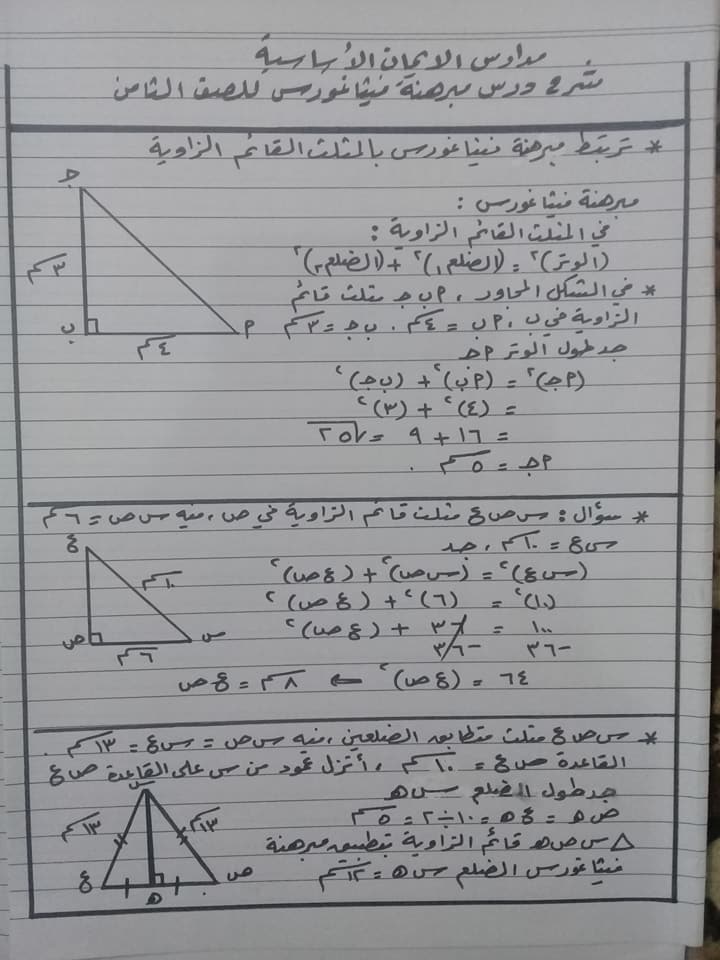 مدارس الايمان الأساسية
شرح درس مبرهنة فيثاغورس للصف الثامن
* ترتبط مبرهنة فيثاغورس بالمثلث القائم الزاوية
مبرهنة فيثاغورس :
في المثلث القائم الزاوية :
(الوتر)² = (الضلع١)² + (الضلع٢)²
* في الشكل المجاور ، أ ب جـ مثلث قائم
الزاوية في ب ، أ ب = ٤سم ، ب جـ = ٣سم
جد طول الوتر أ جـ
(أ جـ)² = (أ ب)² + (ب جـ)²
= (٤)² + (٣)²
= ١٦ + ٩ = √٢٥
أ جـ = ٥سم .
جـ
٣سم
ب
٤سم
أ
* سؤال : س ص ع مثلث قائم الزاوية في ص ، فيه س ص = ٦سم
س ع = ١٠سم ، جد
(س ع)² = (س ص)² + (ع ص)²
(١٠)² = (٦)² + (ع ص)²
١٠٠ = ٣٦ + (ع ص)²
-٣٦ -٣٦
٦٤ = (ع ص)² ⇐ ٨سم = ع ص
ع
١٠سم
ص
٦سم
س
* س ص ع مثلث متطابق الضلعين ، فيه س ص = س ع = ١٣سم .
القاعدة ص ع = ١٠سم ، أنزل عمود من س على القاعدة ص ع
جد طول الضلع س هـ
ص هـ = ع هـ = ١٠ ÷ ٢ = ٥سم
△ س ص هـ قائم الزاوية بتطبيق مبرهنة
فيثاغورس الضلع س هـ = ١٢سم
س
١٣سم
١٣سم
ع
هـ
ص